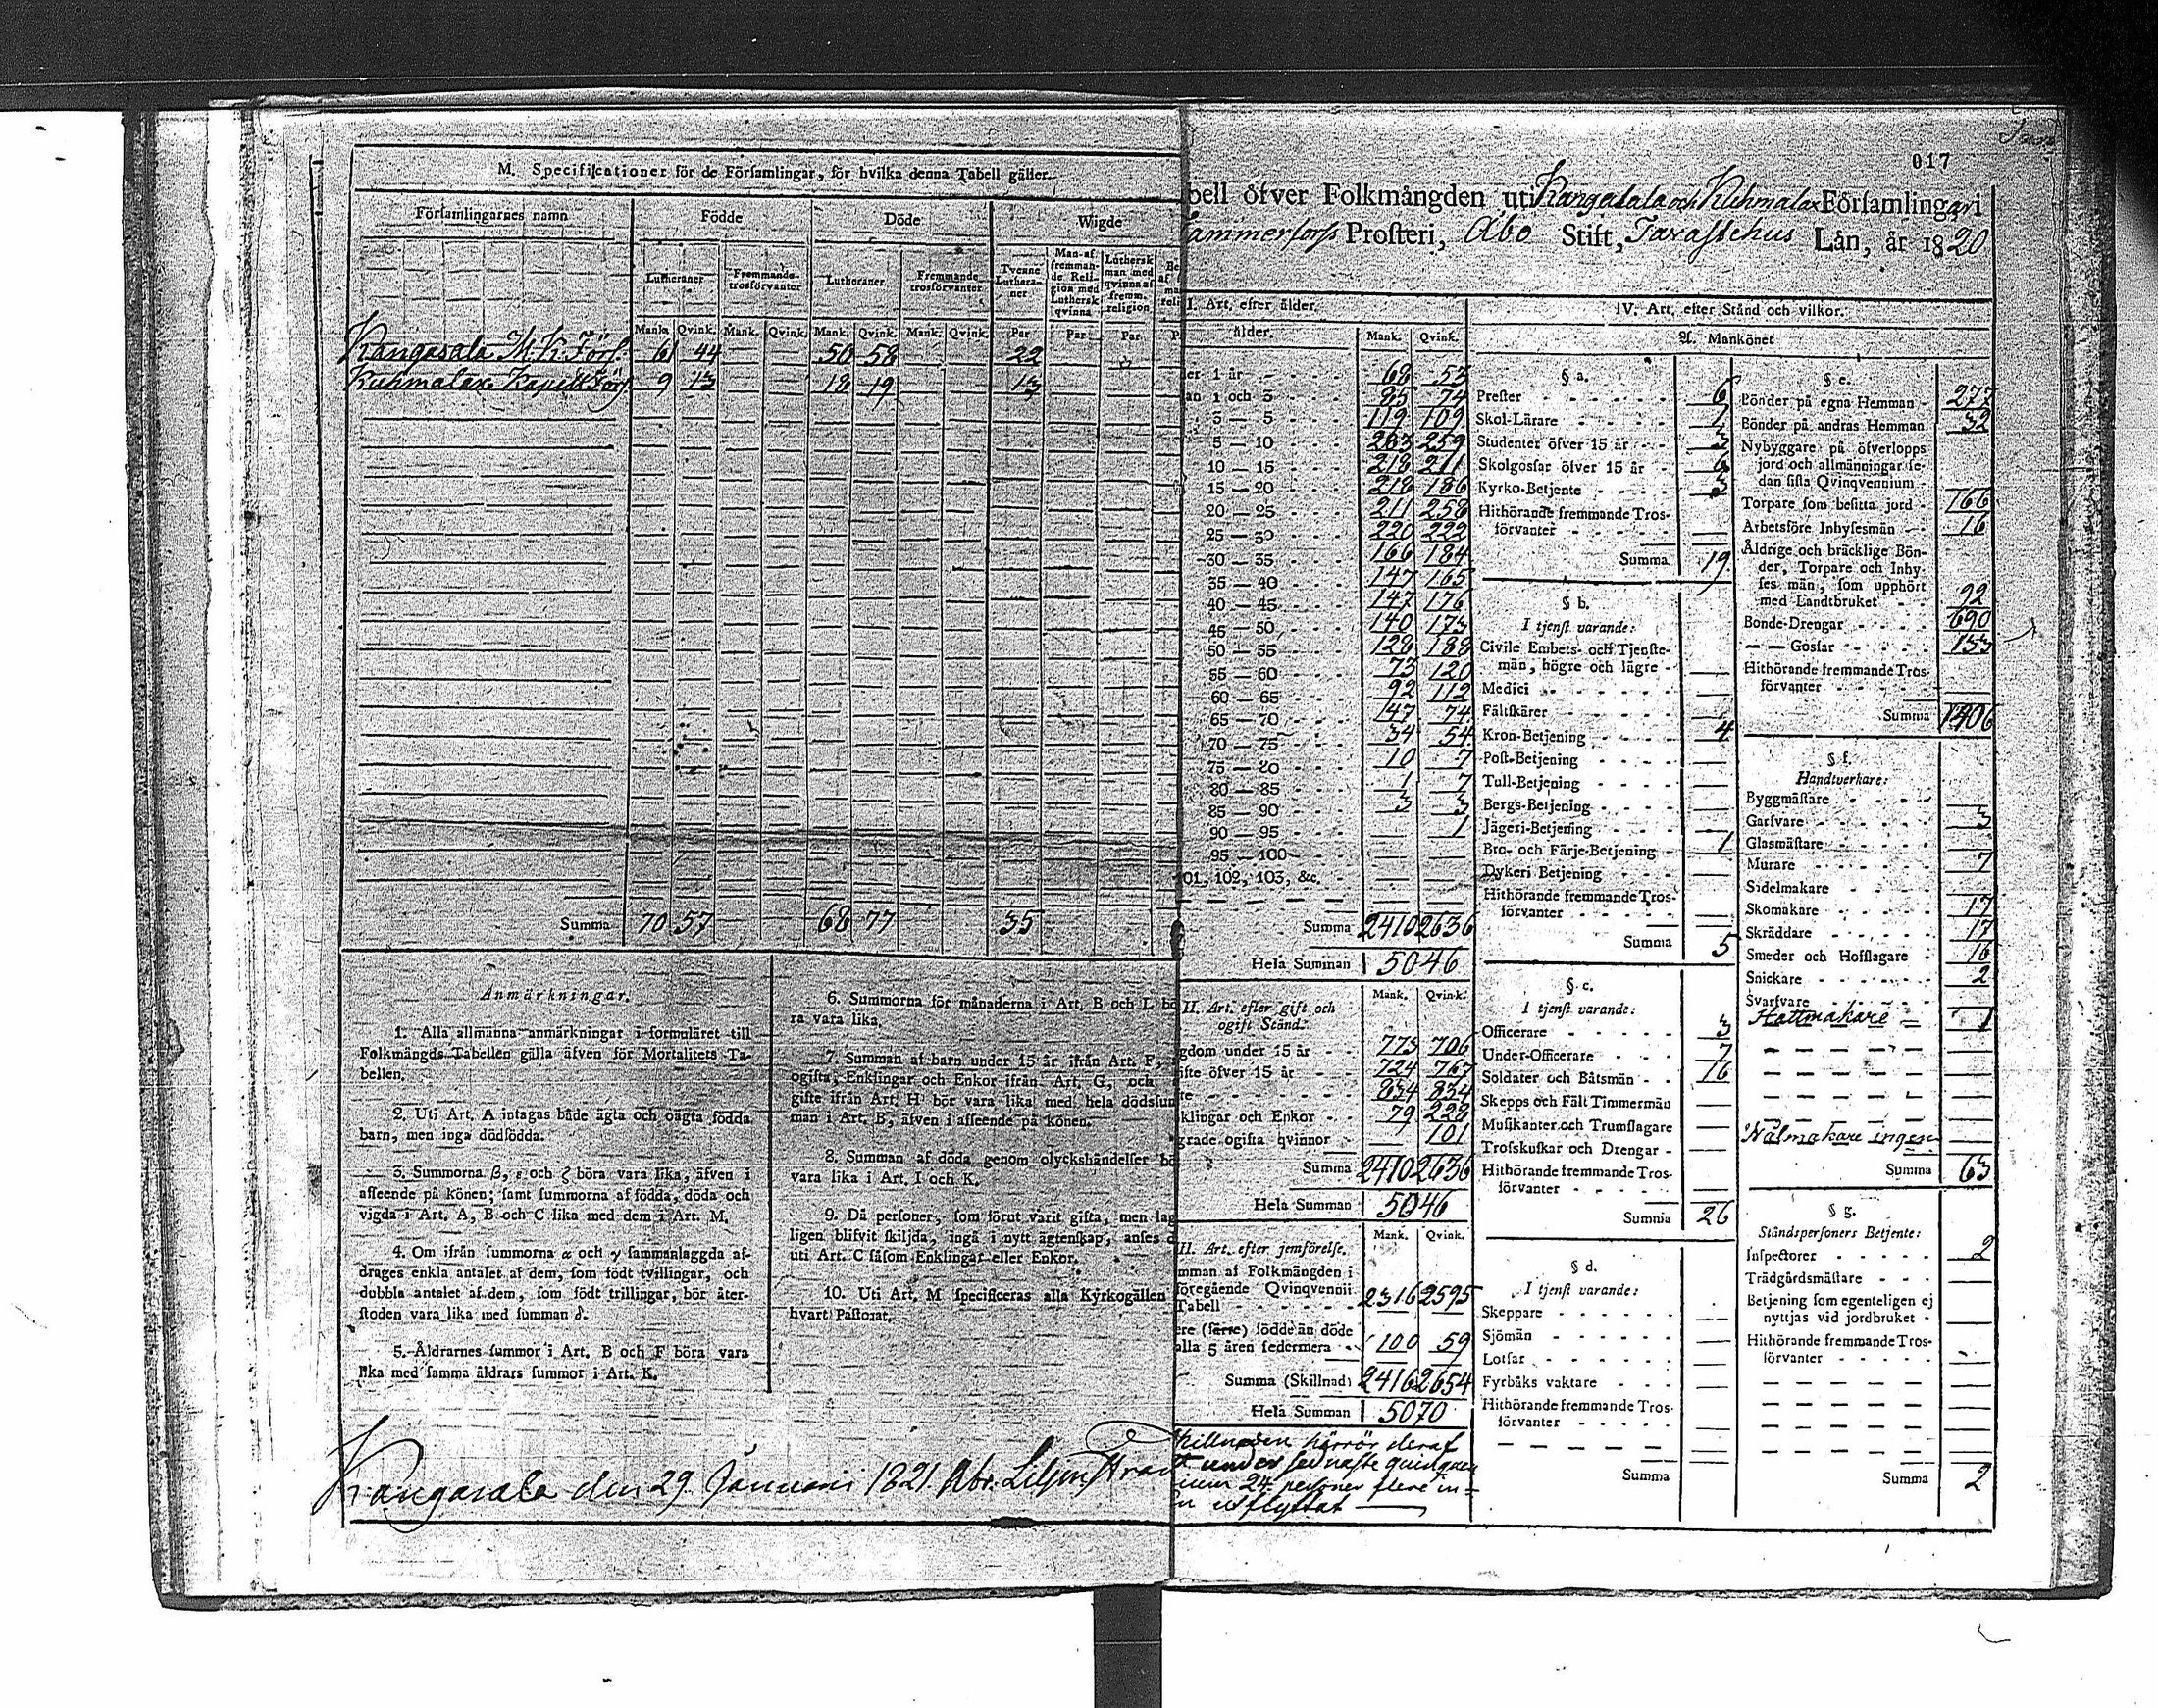 M. Specificationer för de Församlingar, för hvilka denna Tabell gäller.
Församlingarnes namn Födde Döde Wigde
Lutheraner Fremmande trosförvanter Lutheraner Fremmande trosförvanter Tvenne Lutheraner Man af fremmande Religion med Luthersk qvinna Luthersk man med qvinna af fremm. religion
Mank. Qvink. Mank. Qvink. Mank. Qvink. Mank. Qvink. Par Par Par
Kangasala M.K. Förs. 61 44 50 58 22
Kuhmalax Kapell Förs. 9 13 18 19 13
Summa 70 57 68 77 35
Anmärkningar.
1. Alla allmänna anmärkningar i formuläret till
Folkmängds Tabellen gälla äfven för Mortalitets Ta-
bellen.
2. Uti Art. A intagas både ägta och oägta födda
barn, men inga dödfödda.
3. Summorna β, ε och ζ böra vara lika, äfven i
afseende på könen; samt summorna af födda, döda och
vigda i Art. A, B och C lika med dem i Art. M.
4. Om ifrån summorna α och γ sammanlaggda af-
drages enkla antalet af dem, som födt tvillingar, och
dubbla antalet af dem, som födt trillingar, bör åter-
stoden vara lika med summan δ.
5. Åldrarnes summor i Art. B och F böra vara
lika med samma åldrars summor i Art. K.
6. Summorna för månaderna i Art. B och L bö
ra vara lika.
7. Summan af barn under 15 år ifrån Art. F,
ogifta, Enklingar och Enkor ifrån Art. G, och
gifte ifrån Art. H bör vara lika med hela dödssum
man i Art. B, äfven i afseende på könen.
8. Summan af döda genom olyckshändelser bö
vara lika i Art. I och K.
9. Då personer, som förut varit gifta, men lag
ligen blifvit skiljda, ingå i nytt ägtenskap, anses d
uti Art. C såsom Enklingar eller Enkor.
10. Uti Art. M specificeras alla Kyrkogällen
hvart Pastorat.
Kangasala den 29 Januari 1821. Abr. Liljenstrand
017
bell öfver Folkmängden uti Kangasala och Kuhmalax Församlingar i
Tammerfors Prosteri, Åbo Stift, Tavastehus Län, år 1820
I. Art. efter ålder.
ålder. Mank. Qvink.
er 1 år 68 53
an 1 och 3 85 74
3 — 5 119 109
5 — 10 263 259
10 — 15 218 211
15 — 20 218 186
20 — 25 211 258
25 — 30 220 222
30 — 35 166 184
35 — 40 147 165
40 — 45 147 176
45 — 50 140 173
50 — 55 128 188
55 — 60 73 120
60 — 65 92 112
65 — 70 147 74
70 — 75 34 54
75 — 80 10 7
80 — 85 1 7
85 — 90 3 3
90 — 95 1
95 — 100
01, 102, 103, &c.
Summa 2410 2636
Hela Summan 5046
II. Art. efter gift och
ogift Stånd. Mank. Qvink.
gdom under 15 år 773 706
ifte öfver 15 år 724 767
te 834 834
klingar och Enkor 79 228
grade ogifta qvinnor 101
Summa 2410 2636
Hela Summan 5046
II. Art. efter jemförelse. Mank. Qvink.
mman af Folkmängden i
föregående Qvinqvennii
Tabell 2316 2595
ere (färre) födde än döde
alla 5 åren sedermera 100 59
Summa (Skillnad) 2416 2654
Hela Summan 5070
skillnaden härrör deraf
t under sednaste quinquen
nium 24 personer flere in-
n utflyttat
IV. Art. efter Stånd och vilkor.
A. Mankönet
§ a.
Prester 6
Skol-Lärare 1
Studenter öfver 15 år 3
Skolgossar öfver 15 år 6
Kyrko-Betjente 3
Hithörande fremmande Tros-
förvanter
Summa 19
§ b.
I tjenst varande:
Civile Embets- och Tjenste-
män, högre och lägre
Medici
Fältskärer
Kron-Betjening 4
Post-Betjening
Tull-Betjening
Bergs-Betjening
Jägeri-Betjening
Bro- och Färje-Betjening 1
Dykeri Betjening
Hithörande fremmande Tros-
förvanter
Summa 5
§ c.
I tjenst varande:
Officerare 3
Under-Officerare 7
Soldater och Båtsmän 16
Skepps och Fält Timmermän
Musikanter och Trumslagare
Trosskuskar och Drengar
Hithörande fremmande Tros-
förvanter
Summa 26
§ d.
I tjenst varande:
Skeppare
Sjömän
Lotsar
Fyrbåks vaktare
Hithörande fremmande Tros-
förvanter
Summa
§ e.
Bönder på egna Hemman 277
Bönder på andras Hemman 32
Nybyggare på öfverlopps
jord och allmänningar se-
dan sista Qvinqvennium
Torpare som besitta jord 166
Arbetsföre Inhysesmän 16
Åldrige och bräcklige Bön-
der, Torpare och Inhy-
ses män, som upphört
med Landtbruket 92
Bonde-Drengar 690
— — Gossar 133
Hithörande fremmande Tros-
förvanter
Summa 1406
§ f.
Handtverkare:
Byggmästare
Garfvare 3
Glasmästare
Murare 7
Sadelmakare
Skomakare 17
Skräddare 17
Smeder och Hofslagare 16
Snickare 2
Svarfvare
Hattmakare 1
Nålmakare ingen
Summa 63
§ g.
Ståndspersoners Betjente:
Inspectorer 2
Trädgårdsmästare
Betjening som egenteligen ej
nyttjas vid jordbruket
Hithörande fremmande Tros-
förvanter
Summa 2